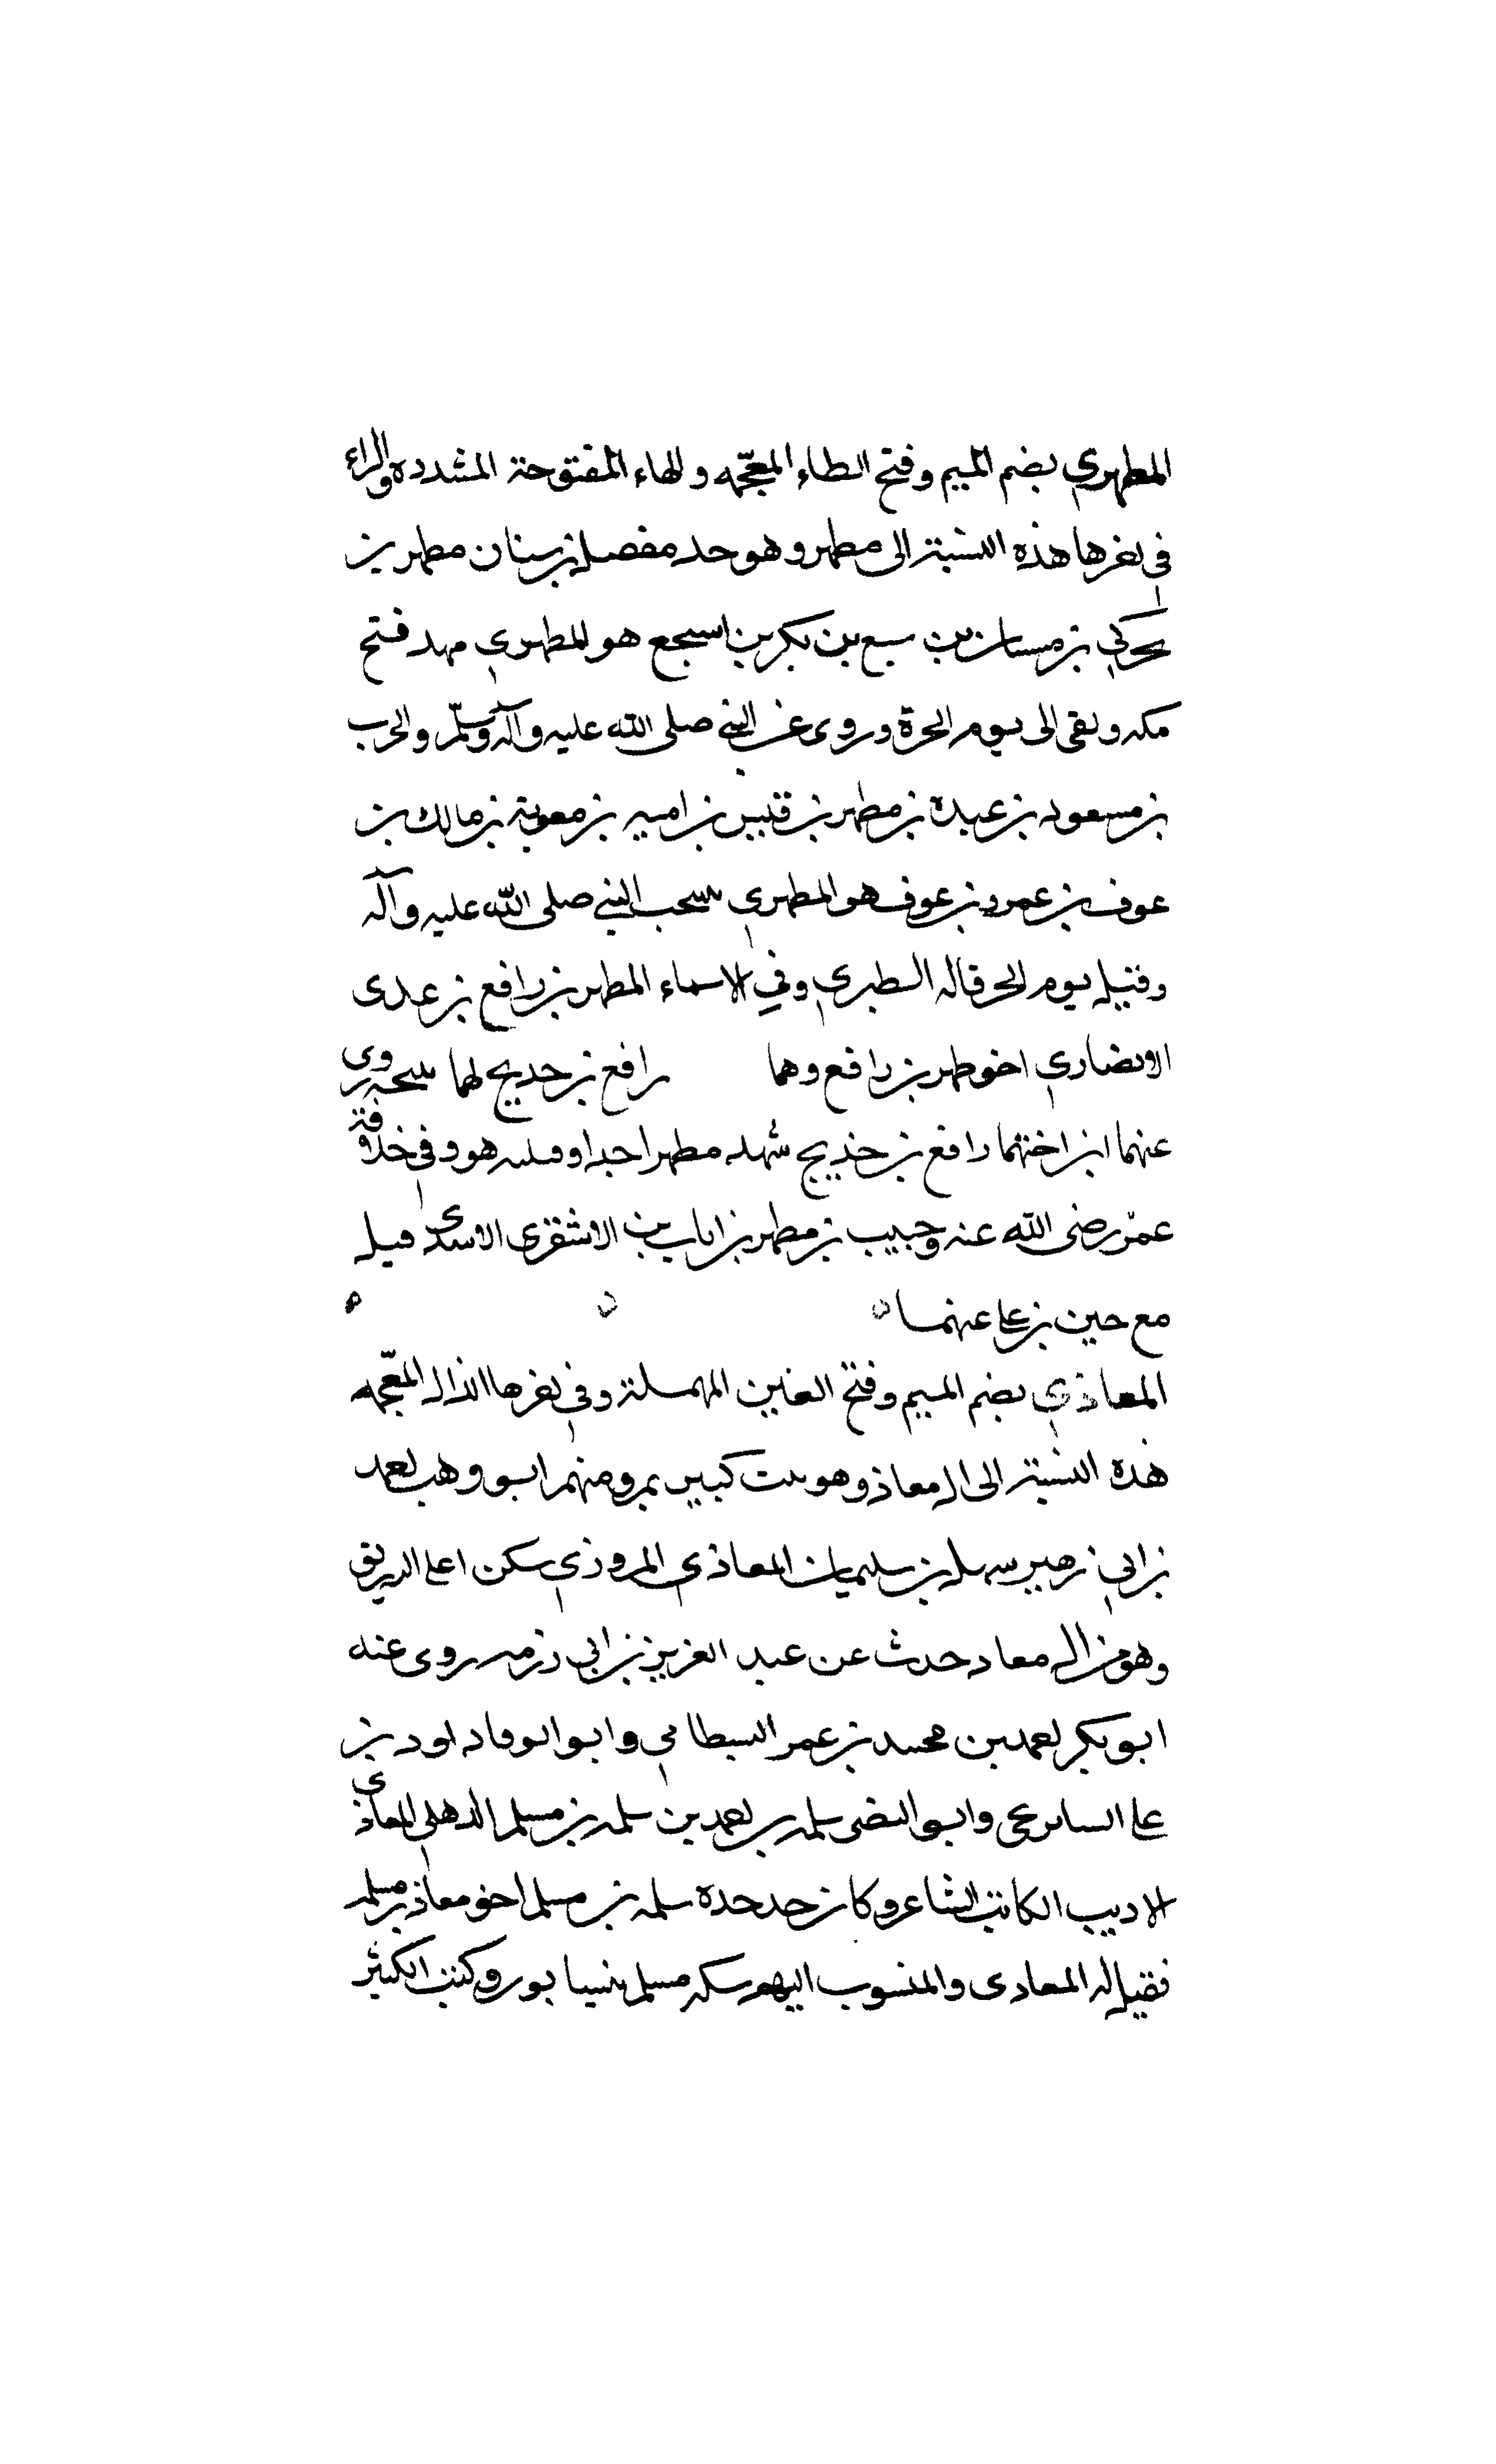 المطهري بضم الميم وفتح الطاء المعجمه والهاء المفتوحة المشددة والراء
في اخرها هذه النسبة الى مطهر وهو جد مفصل بن سنان مطهر بن
بن بكر بن اشجع هو المطهري فتح
مكه وبقى الى يوم الحرة وروى عن النبي صلى الله عليه وآله وسلم والحرب
بن مسعود بن عبدة بن مطهر بن قيس بن اميه بن معوية بن مالك بن
عوف بن عمرو بن عوف هو المطهري صحب النبي صلى الله عليه وآله
وقتيل يوم الحر قاله الطبري وفي الاسماء المطهر بن رافع بن عدى
الانصاري اخو ظهر بن رافع وهما رافع بن خديج لهما صحبة روى
عنهما ابن اختهما رافع بن خديج شهد مطهر احدا هود في خلافة
عمر رضى الله عنه وحبيب بن مطهر بن اياب بن الاشقرى الاسدى قيل
مع حين بن على عنهما
المعاذي بضم الميم وفتح العين المهملة وفي اخرها الذال المعجمه
هذه النسبة الى ال معاذ وهو بيت كبير بمرو منهم ابو وهب احمد
بن ابي زهير سهل بن سليمان المعاذي المروزي سكن اعلى
وهو من ال معاد حدث عن عبد العزيز بن ابي رزمه روى عنه
ابو بكر احمد بن محمد بن عمر البسطامي وابو الوفا داود بن
على وابو النضى سلمه بن احمد بن سلمه بن مسلم الذهلى المعاذى
الاديب الكاتب الشاعر وكان جد جده سلمه بن مسلم اخو معاذ بن مسلم
فقيل له المعادى والمنسوب اليهم سكه مسلم بنيسابور وكتب الكثير